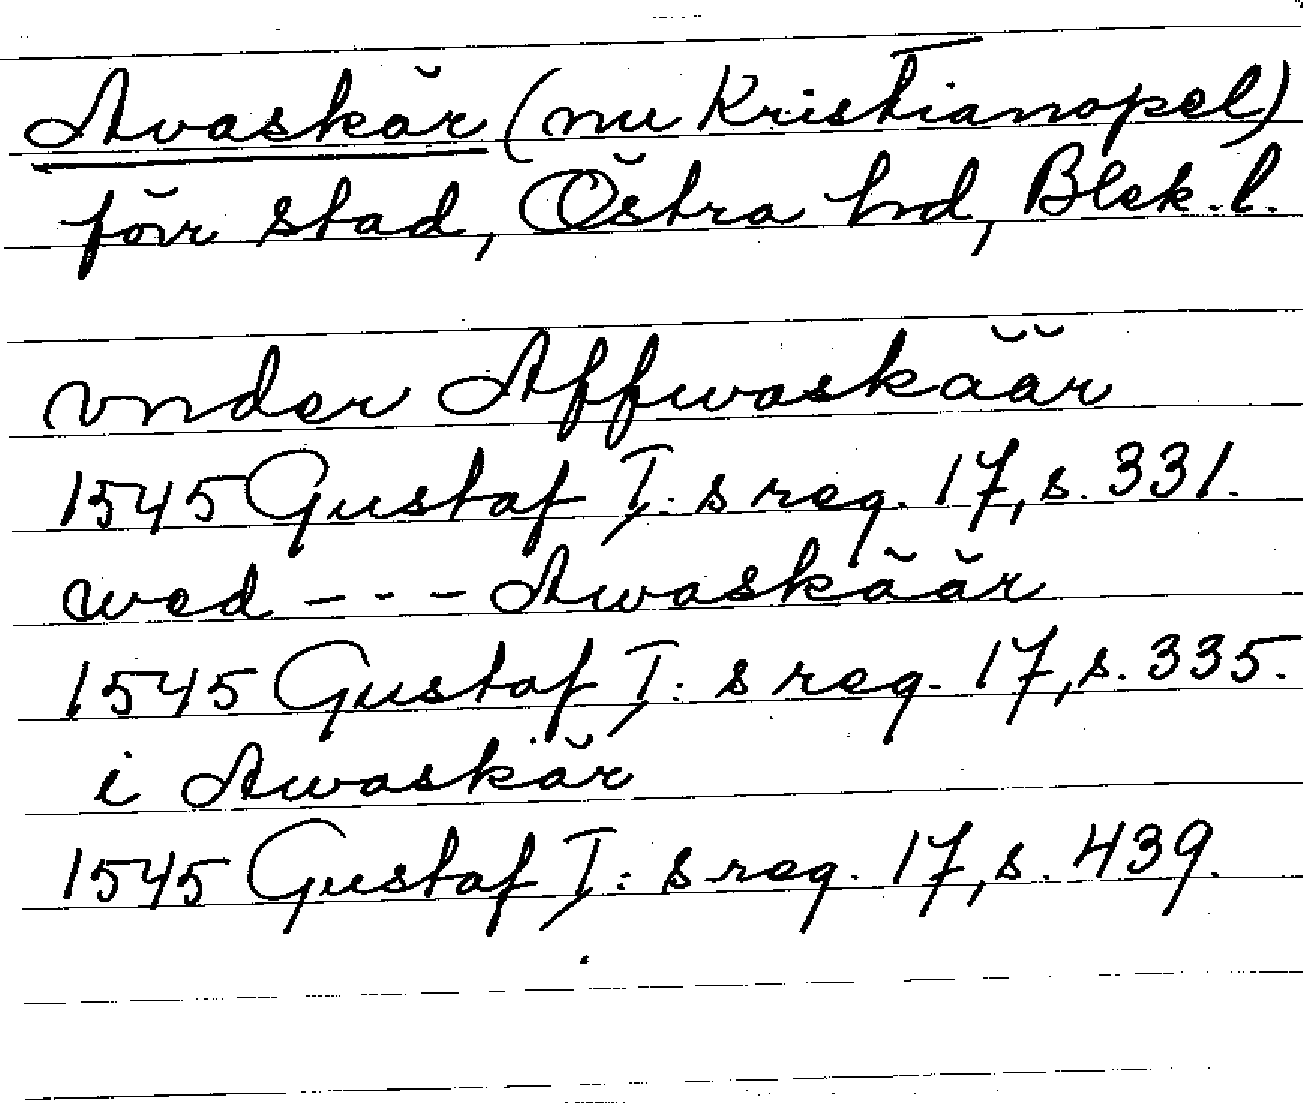 Avaskär (nu Kristianopel)
förr stad, Östra hd, Blek. l.
vnder Affwaskäär
1545 Gustaf I:s reg. 17, s. 331.
wed - - - Awaskäär
1545 Gustaf I:s reg. 17, s. 335.
i Awaskär
1545 Gustaf I:s reg. 17, s. 439.